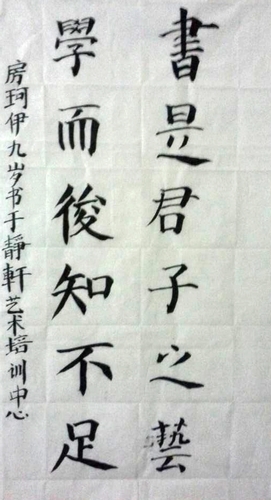 書是君子之藝
學而後知不足
房珂伊九岁书于靜軒艺术培训中心